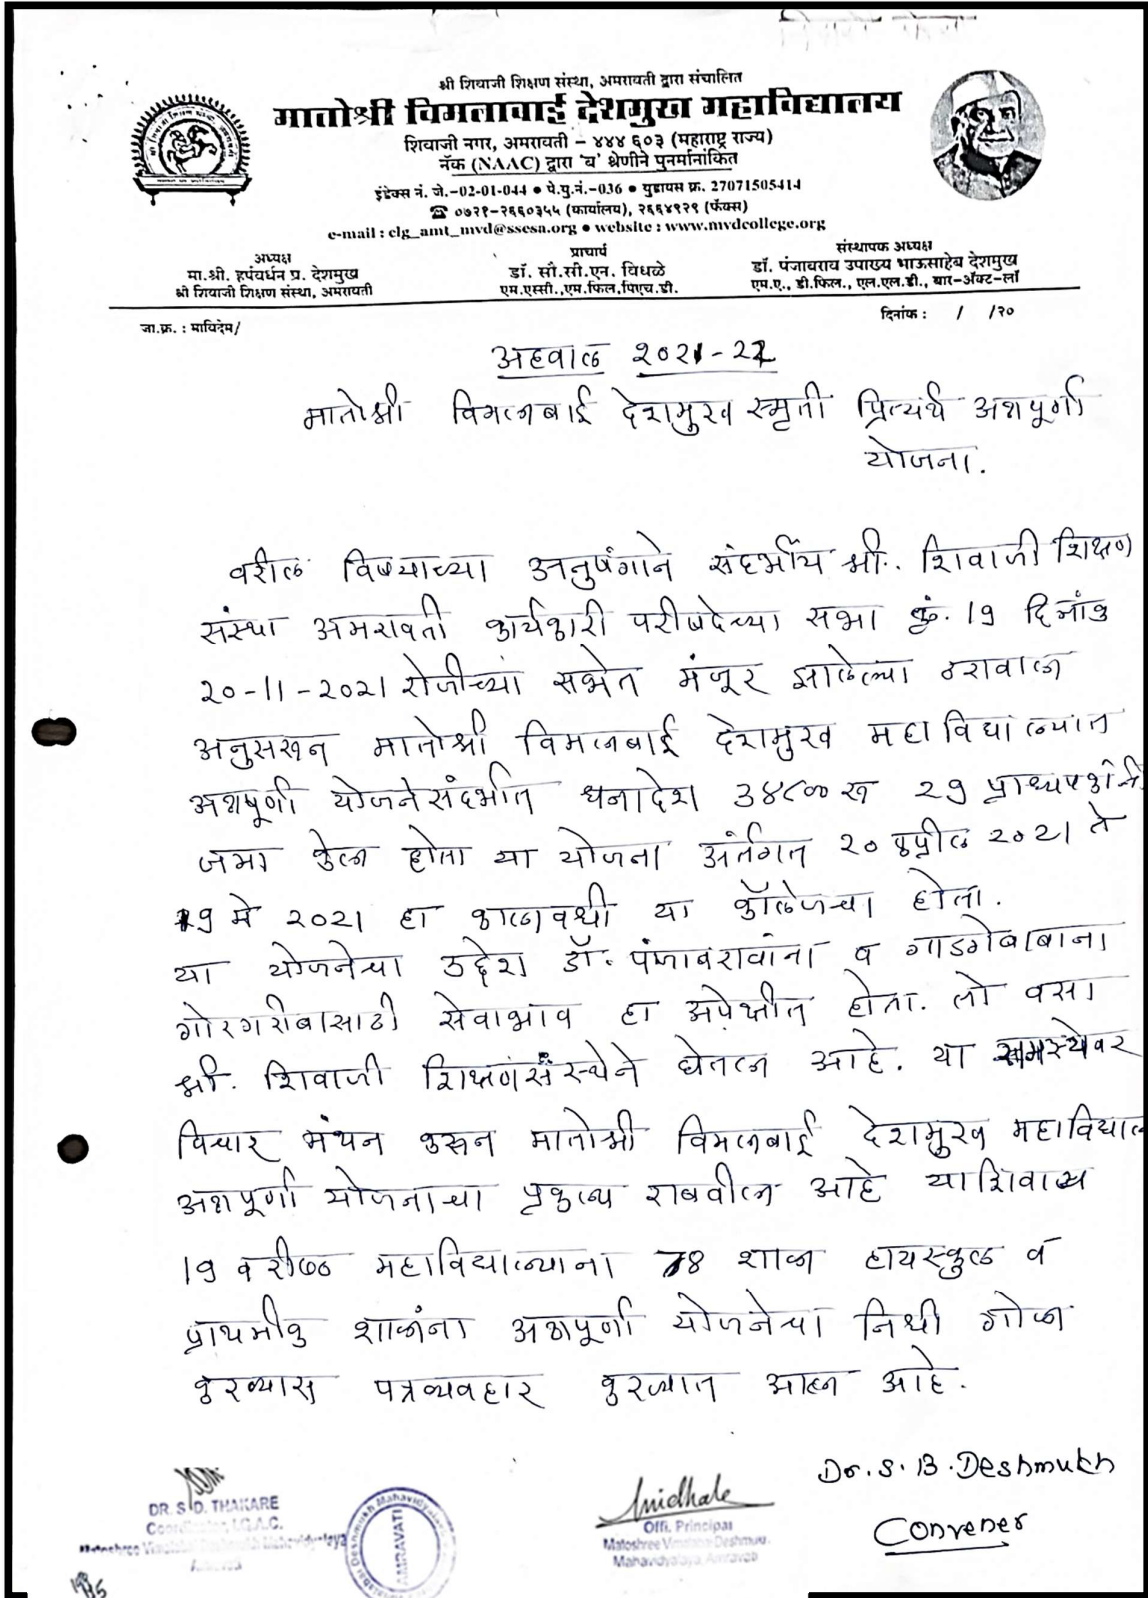 श्री शिवाजी शिक्षण संस्था, अमरावती द्वारा संचालित
मातोश्री विमलाबाई देशमुख महाविद्यालय
शिवाजी नगर, अमरावती – ४४४ ६०३ (महाराष्ट्र राज्य)
नॅक (NAAC) द्वारा 'ब' श्रेणीने पुनर्मानांकित
इंडेक्स नं. जे.-02-01-044 ● पे.यु.नं.-036 ● युडायस क्र. 27071505414
☎ ०७२१-२६६०३५५ (कार्यालय), २६६४९२९ (फॅक्स)
e-mail : clg_amt_mvd@ssesa.org ● website : www.mvdcollege.org
अध्यक्ष
मा.श्री. हर्षवर्धन प्र. देशमुख
श्री शिवाजी शिक्षण संस्था, अमरावती
प्राचार्य
डॉ. सौ.सी.एन. विधळे
एम.एस्सी.,एम.फिल,पिएच.डी.
संस्थापक अध्यक्ष
डॉ. पंजाबराव उपाख्य भाऊसाहेब देशमुख
एम.ए., डी.फिल., एल.एल.डी., बार-ॲक्ट-लॉ
जा.क्र. : माविदेम/
दिनांक : / /२०
अहवाल २०२१-22
मातोश्री विमलाबाई देशमुख स्मृती प्रित्यर्थ अन्नपूर्णा
योजना.
वरील विषयाच्या अनुषंगाने संदर्भीय श्री. शिवाजी शिक्षण
संस्था अमरावती कार्यकारी परीषदेच्या सभा क्रं. 19 दिनांक
२०-11-२०२1 रोजीच्या सभेत मंजूर झालेल्या ठरावाला
अनुसरून मातोश्री विमलाबाई देशमुख महाविद्यालयात
अन्नपूर्णा योजनेसंदर्भात धनादेश रू २9 प्राध्यापकांनी
जमा केला होता या योजना अंर्तगत २० एप्रील २०२1 ते
१9 मे २०२1 हा कालावधी या कॉलेजचा होता.
या योजनेचा उद्देश डॉ. पंजाबरावांना व गाडगेबाबाना
गोरगरीबासाठी सेवाभाव हा अपेक्षीत होता. तो वसा
श्री. शिवाजी शिक्षण संस्थेने घेतला आहे. या समस्येवर
विचार मंथन करून मातोश्री विमलाबाई देशमुख महाविद्याल
अन्नपूर्णा योजनाचा प्रकल्प राबवीला आहे याशिवाय
19 वरीष्ठ महाविद्यालयाना 78 शाळा हायस्कुल व
प्राथमीक शाळांना अन्नपूर्णा योजनेचा निधी गोळा
करण्यास पत्रव्यवहार करण्यात आला आहे.
Dr. S. B. Deshmukh
Convener
DR. S. D. THAKARE
Coordinator, I.Q.A.C.
Matoshree Vimalabai Deshmukh Mahavidyalaya
Amravati
Deshmukh Mahavidyalaya
AMRAVATI
Offi. Principal
Matoshree Vimalabai Deshmukh
Mahavidyalaya, Amravati